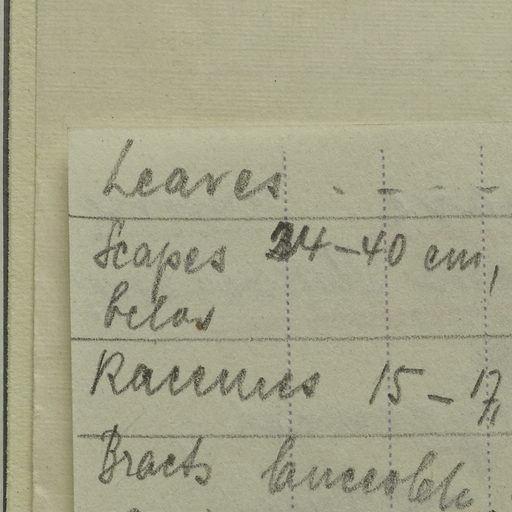 Leaves . - - -
Scapes 34-40 cm,
below
Racemes 15-17,
Bracts lanceolate